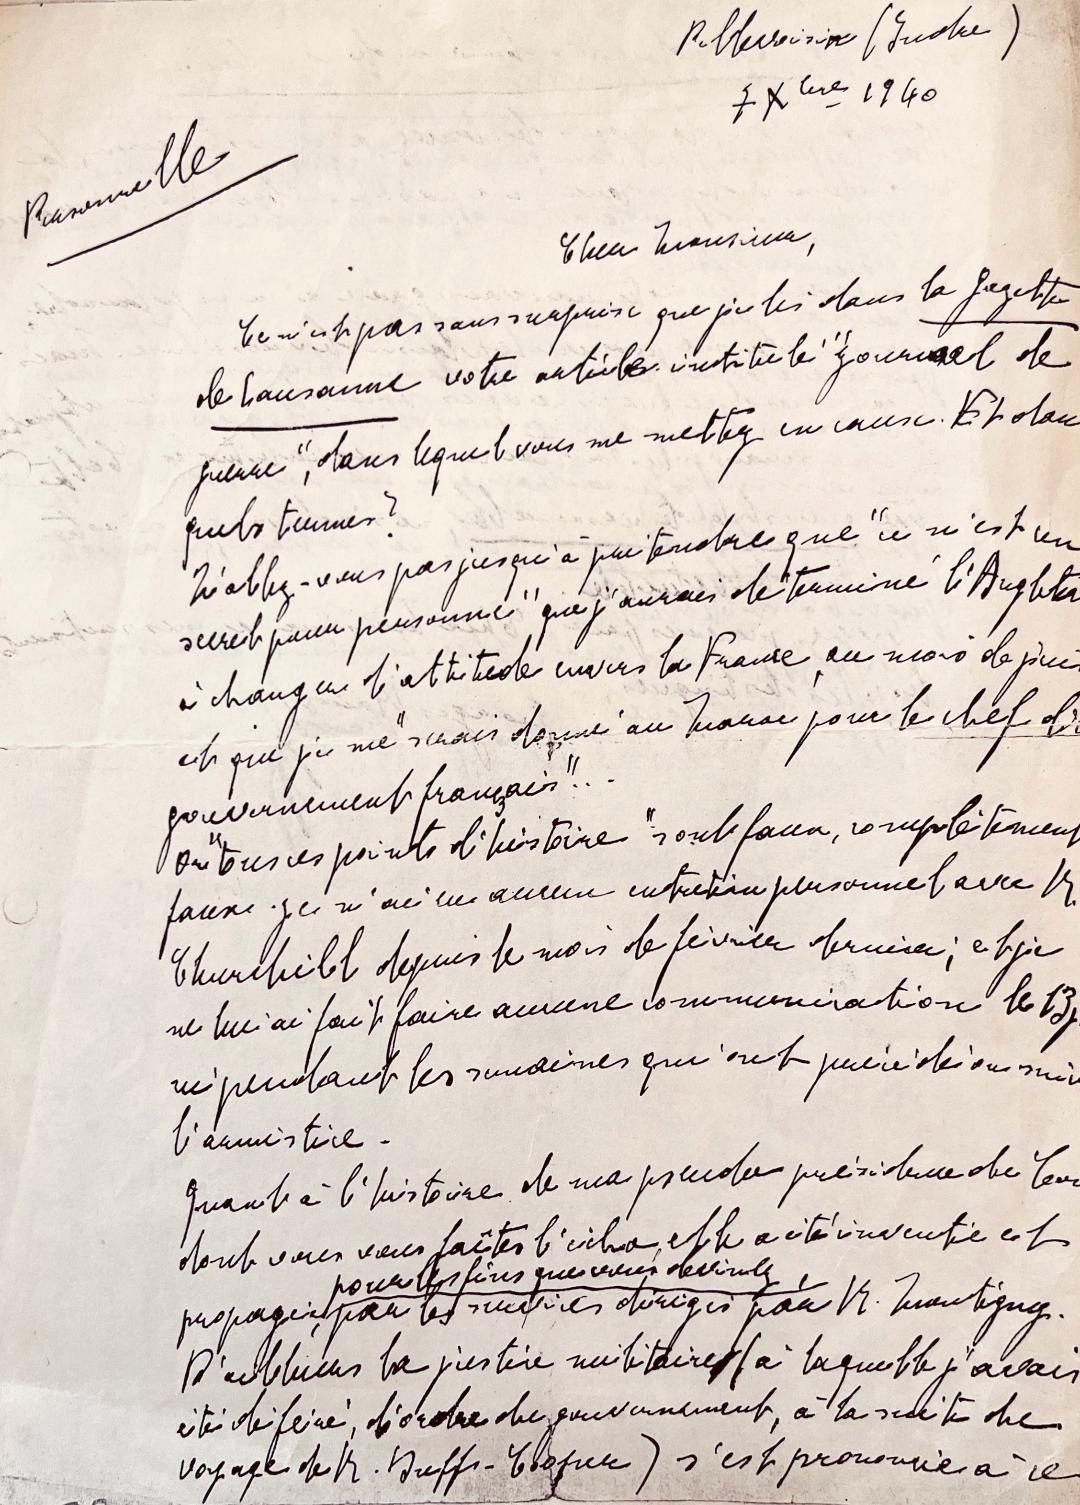 Pellevoisin (Indre)
7 Xbre 1940
Personnelle
Cher Monsieur,
Ce n'est pas sans surprise que j'ai lu dans la Gazette
de Lausanne votre article intitulé "Journal de
guerre", dans lequel vous me mettez en cause. Et dans
quels termes?
N'allez-vous pas jusqu'à prétendre que "ce n'est un
secret pour personne" que j'aurais déterminé l'Anglete
à changer d'attitude envers la France, au mois de juin
et que je me "serais donné au Maroc pour le chef du
gouvernement français"...
Or "tous ces points d'histoire" sont faux, complètement
faux. Je n'ai eu aucun entretien personnel avec M.
Churchill depuis le mois de février dernier; et je
ne lui ai fait faire aucune communication le 13 j
ni pendant les semaines qui ont précédé ou suiv
l'armistice.
Quant à l'histoire de ma pseudo présidence de
dont vous vous faites l'écho, elle a été inventée et
pour les fins que vous devinez,
propagée, par les services dirigés par M. Montigny.
D'ailleurs la justice militaire (à laquelle j'avais
été déféré, d'ordre du gouvernement, à la suite du
voyage de M. Duff-Cooper) s'est prononcée à ce